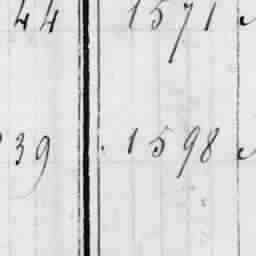 44 1571
39 1598